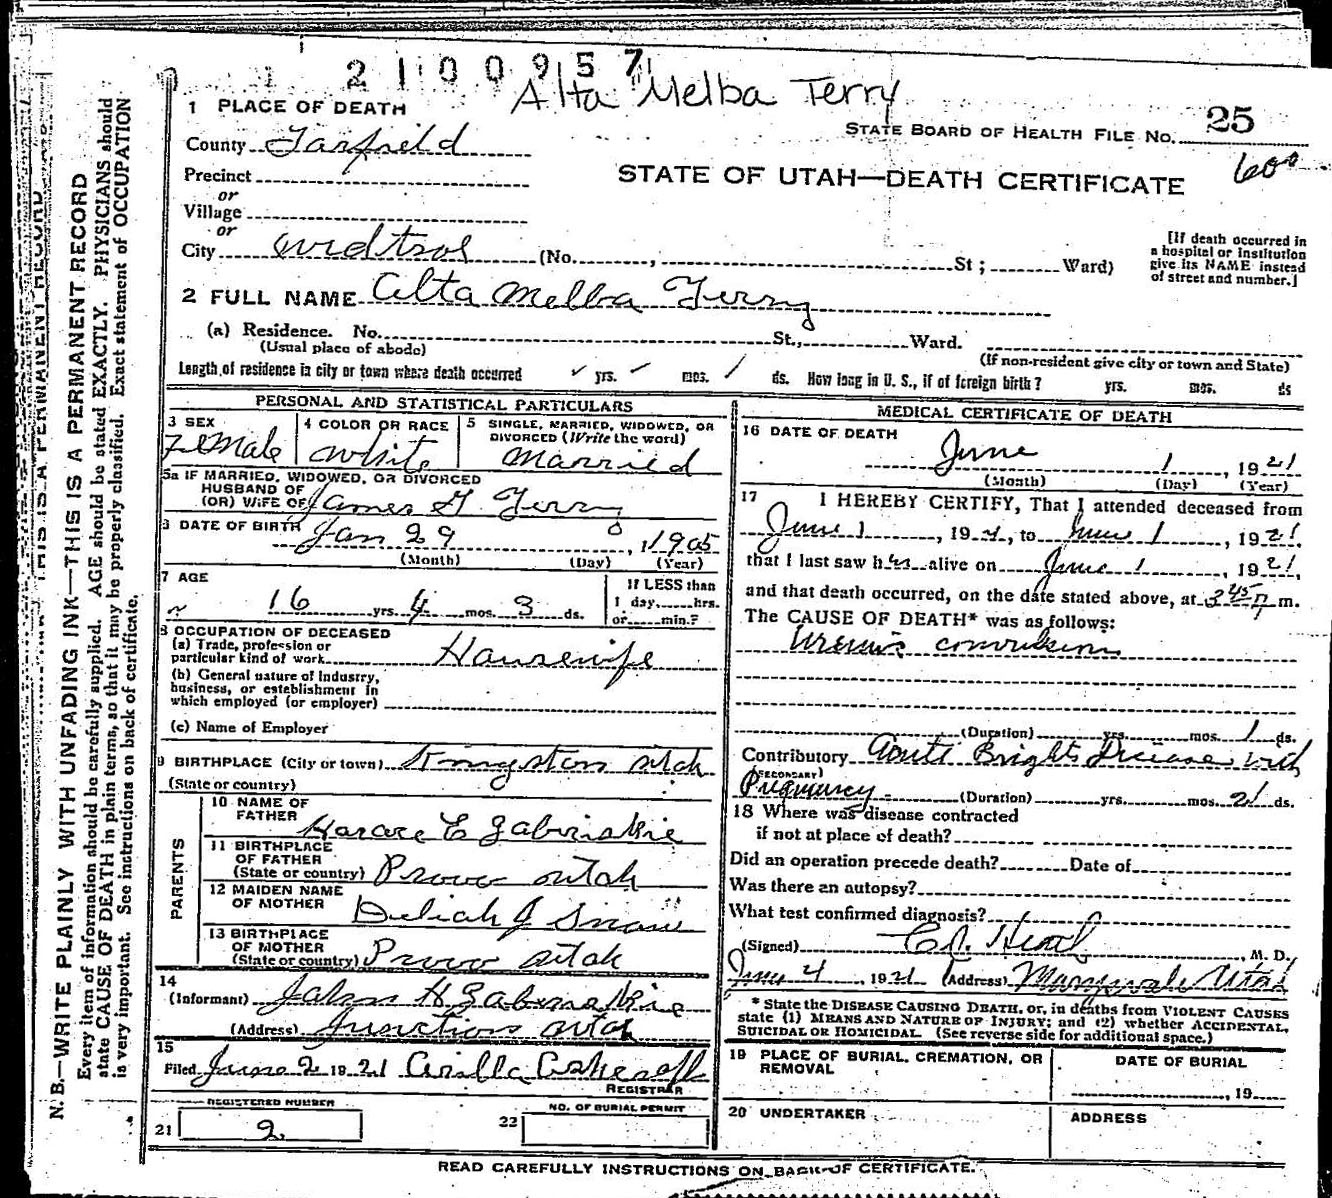 2100957
Alta Melba Terry
1 PLACE OF DEATH
STATE BOARD OF HEALTH FILE NO. 25
County Garfield
600
Precinct
STATE OF UTAH—DEATH CERTIFICATE
or
Village
or
City Widtsoe (No. , St ; Ward)
[If death occurred in
a hospital or institution
give its NAME instead
of street and number.]
2 FULL NAME Alta Melba Terry
(a) Residence. No. St., Ward.
(Usual place of abode)
(If non-resident give city or town and State)
Length of residence in city or town where death occurred ✓ yrs. ✓ mos. / ds. How long in U. S., if of foreign birth? yrs. mos. ds
PERSONAL AND STATISTICAL PARTICULARS
3 SEX
Female
4 COLOR OR RACE
White
5 SINGLE, MARRIED, WIDOWED, OR
DIVORCED (Write the word)
Married
5a IF MARRIED, WIDOWED, OR DIVORCED
HUSBAND OF
(OR) WIFE OF James G Terry
6 DATE OF BIRTH Jan 29, 1905
(Month) (Day) (Year)
7 AGE
16 yrs. 4 mos. 3 ds.
If LESS than
1 day hrs.
or min.?
8 OCCUPATION OF DECEASED
(a) Trade, profession or
particular kind of work Housewife
(b) General nature of industry,
business, or establishment in
which employed (or employer)
(c) Name of Employer
9 BIRTHPLACE (City or town) Kingston Utah
(State or country)
PARENTS
10 NAME OF
FATHER Horace E Zabriskie
11 BIRTHPLACE
OF FATHER
(State or country) Provo Utah
12 MAIDEN NAME
OF MOTHER Deliah J Snow
13 BIRTHPLACE
OF MOTHER
(State or country) Provo Utah
14
(Informant) John H Zabriskie
(Address) Junction Utah
15
Filed June 2 1921 Arilla
REGISTRAR
REGISTERED NUMBER
21 2
NO. OF BURIAL PERMIT
22
MEDICAL CERTIFICATE OF DEATH
16 DATE OF DEATH
June 1, 1921
(Month) (Day) (Year)
17 I HEREBY CERTIFY, That I attended deceased from
June 1, 1921, to June 1, 1921,
that I last saw her alive on June 1, 1921,
and that death occurred, on the date stated above, at 3 45 P m.
The CAUSE OF DEATH* was as follows:
Uremic convulsions
(Duration) yrs. mos. 1 ds.
Contributory Acute Brights Disease with
(SECONDARY)
Pregnancy (Duration) yrs. mos. 21 ds.
18 Where was disease contracted
if not at place of death?
Did an operation precede death? Date of
Was there an autopsy?
What test confirmed diagnosis?
(Signed) M. D.
June 4, 1921 (Address) Marysvale Utah
* State the DISEASE CAUSING DEATH, or, in deaths from VIOLENT CAUSES
state (1) MEANS AND NATURE OF INJURY; and (2) whether ACCIDENTAL,
SUICIDAL OR HOMICIDAL. (See reverse side for additional space.)
19 PLACE OF BURIAL, CREMATION, OR
REMOVAL
DATE OF BURIAL
, 19
20 UNDERTAKER
ADDRESS
READ CAREFULLY INSTRUCTIONS ON BACK OF CERTIFICATE.
THIS IS A PERMANENT RECORD
N. B.—WRITE PLAINLY WITH UNFADING INK—THIS IS A PERMANENT RECORD
Every item of information should be carefully supplied. AGE should be stated EXACTLY. PHYSICIANS should
state CAUSE OF DEATH in plain terms, so that it may be properly classified. Exact statement of OCCUPATION
is very important. See instructions on back of certificate.